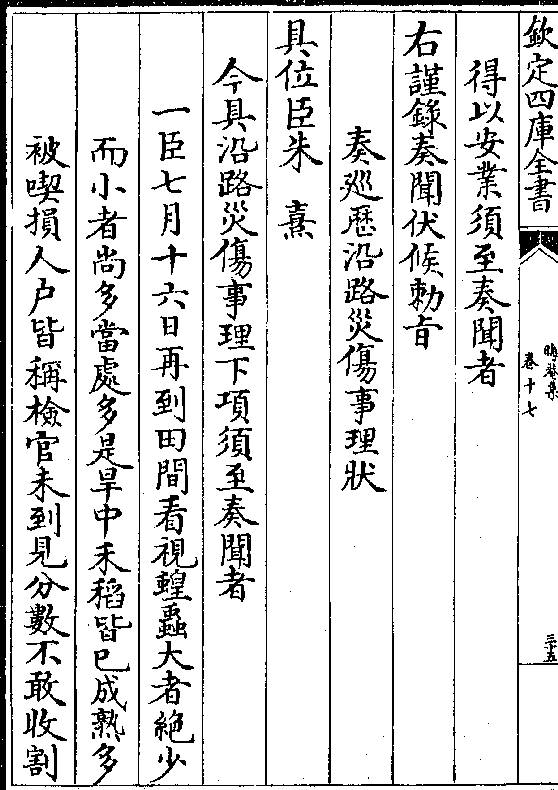 欽定四庫全書
晦菴集
卷十七
三十五
得以安業須至奏聞者
右謹錄奏聞伏候勅旨
奏廵歷沿路災傷事理狀
具位臣朱熹
今具沿路災傷事理下項須至奏聞者
一臣七月十六日再到田間看視蝗蟲大者絶少
而小者尚多當處多是旱中禾稻皆已成熟多
被喫損人户皆稱檢官未到見分數不敢收割